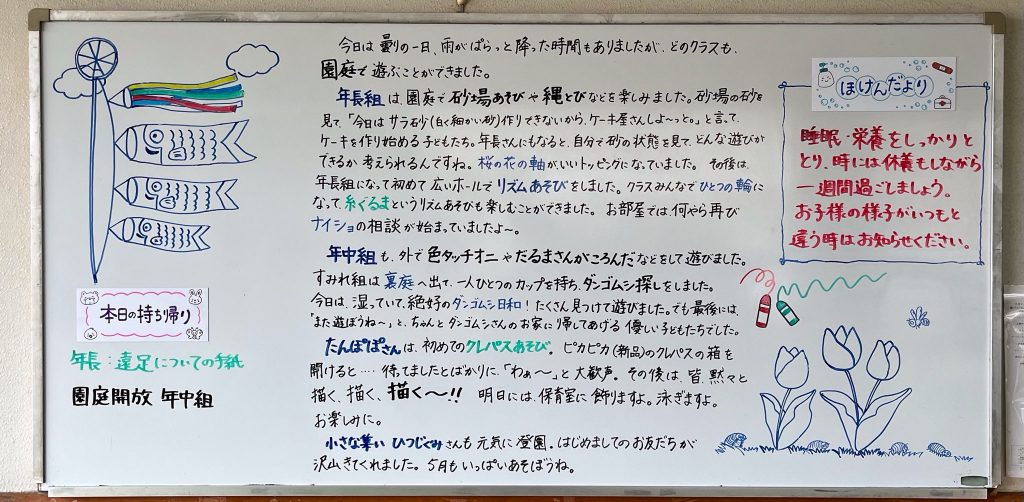 今日は曇りの一日、雨がぱらっと降った時間もありましたが、どのクラスも、
園庭で遊ぶことができました。
年長組は、園庭で砂場あそびや縄とびなどを楽しみました。砂場の砂を
見て、「今日はサラ砂(白く細かい砂)作りできないから、ケーキ屋さんしよ〜っと。」と言って、
ケーキを作り始める子どもたち。年長さんにもなると、自分で砂の状態を見て、どんな遊びが
できるか考えられるんですね。桜の花の軸がいいトッピングになっていました。その後は、
年長組になって初めて広いホールでリズムあそびをしました。クラスみんなでひとつの輪に
なって、糸ぐるまというリズムあそびも楽しむことができました。お部屋では、何やら再び
ナイショの相談が始まっていましたよ〜。
年中組も、外で色タッチオニやだるまさんがころんだなどをして遊びました。
すみれ組は裏庭へ出て、一人ひとつのカップを持ち、ダンゴムシ探しをしました。
今日は、湿っていて、絶好のダンゴムシ日和!たくさん見つけて遊びました。でも最後には、
「また遊ぼうね〜」と、ちゃんとダンゴムシさんのお家に帰してあげる優しい子どもたちでした。
たんぽぽさんは、初めてのクレパスあそび。ピカピカ(新品)のクレパスの箱を
開けると‥‥待ってましたとばかりに、「わぁ〜」と大歓声。その後は、皆、黙々と
描く、描く、描く〜!!明日には、保育室に飾りますよ。泳ぎますよ。
お楽しみに。
小さな集いひつじぐみさんも元気に登園。はじめましてのお友だちが
沢山きてくれました。5月もいっぱいあそぼうね。
本日の持ち帰り
年長:遠足についての手紙
園庭開放 年中組
ほけんだより
睡眠・栄養をしっかりと
とり、時には休養もしながら
一週間過ごしましょう。
お子様の様子がいつもと
違う時はお知らせください。